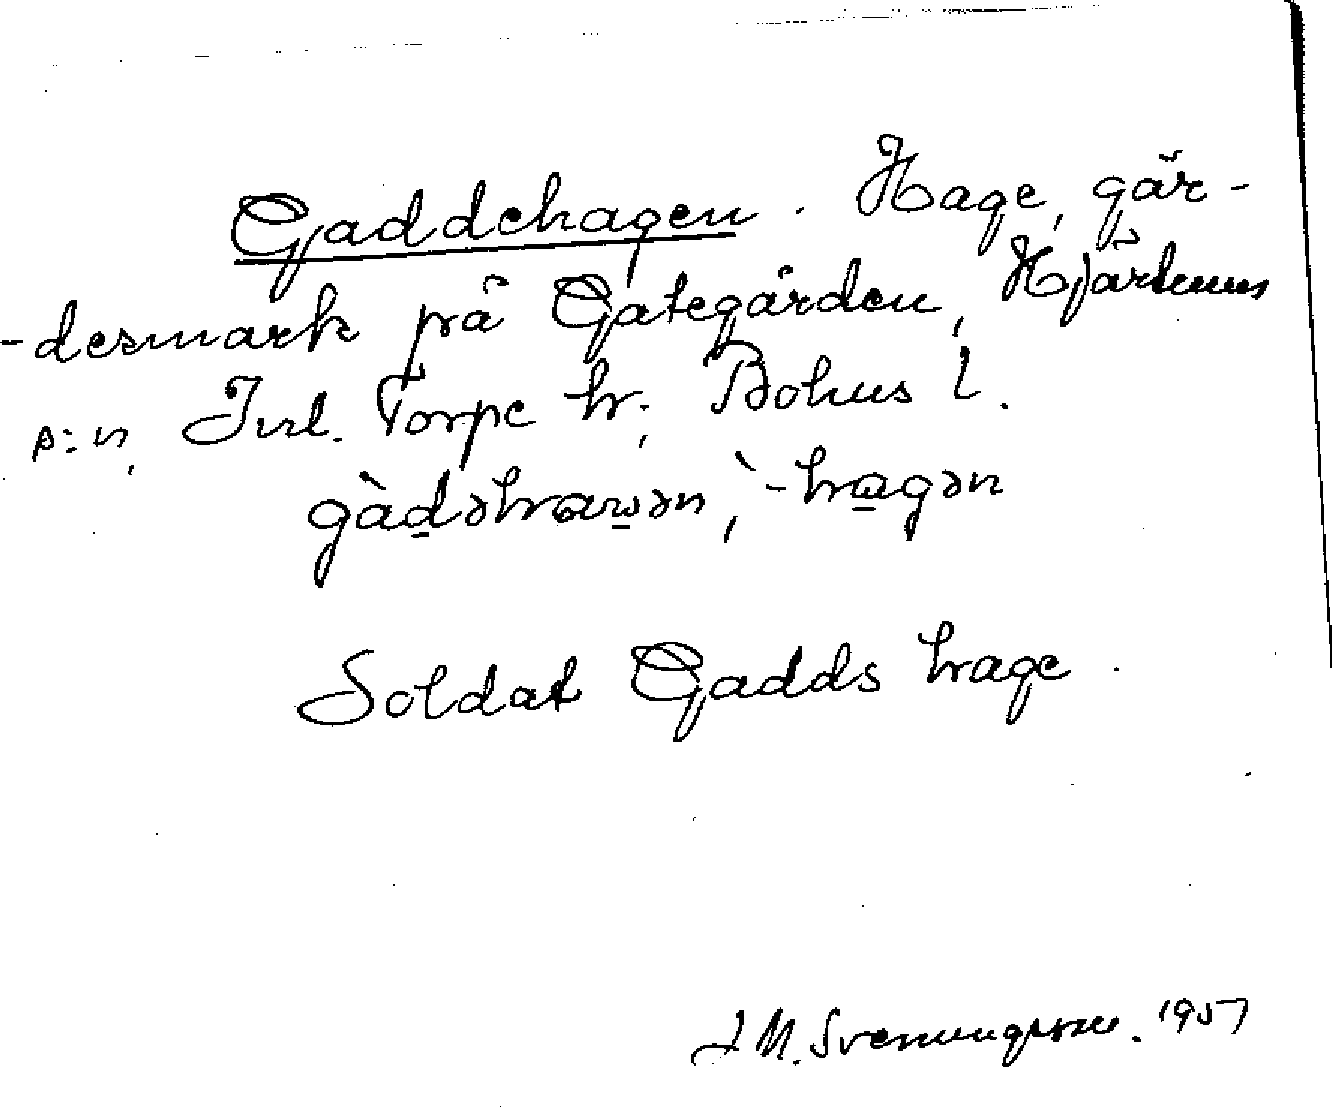 Gaddehagen. Hage, gär-
-desmark på Gategården, Hjärtums
s:n, Inl. Torpe hr, Bohus l.
gàd̲əhaw̲ən, `-ha̲gən
Soldat Gadds hage.
J M. Svenungsson. 1957